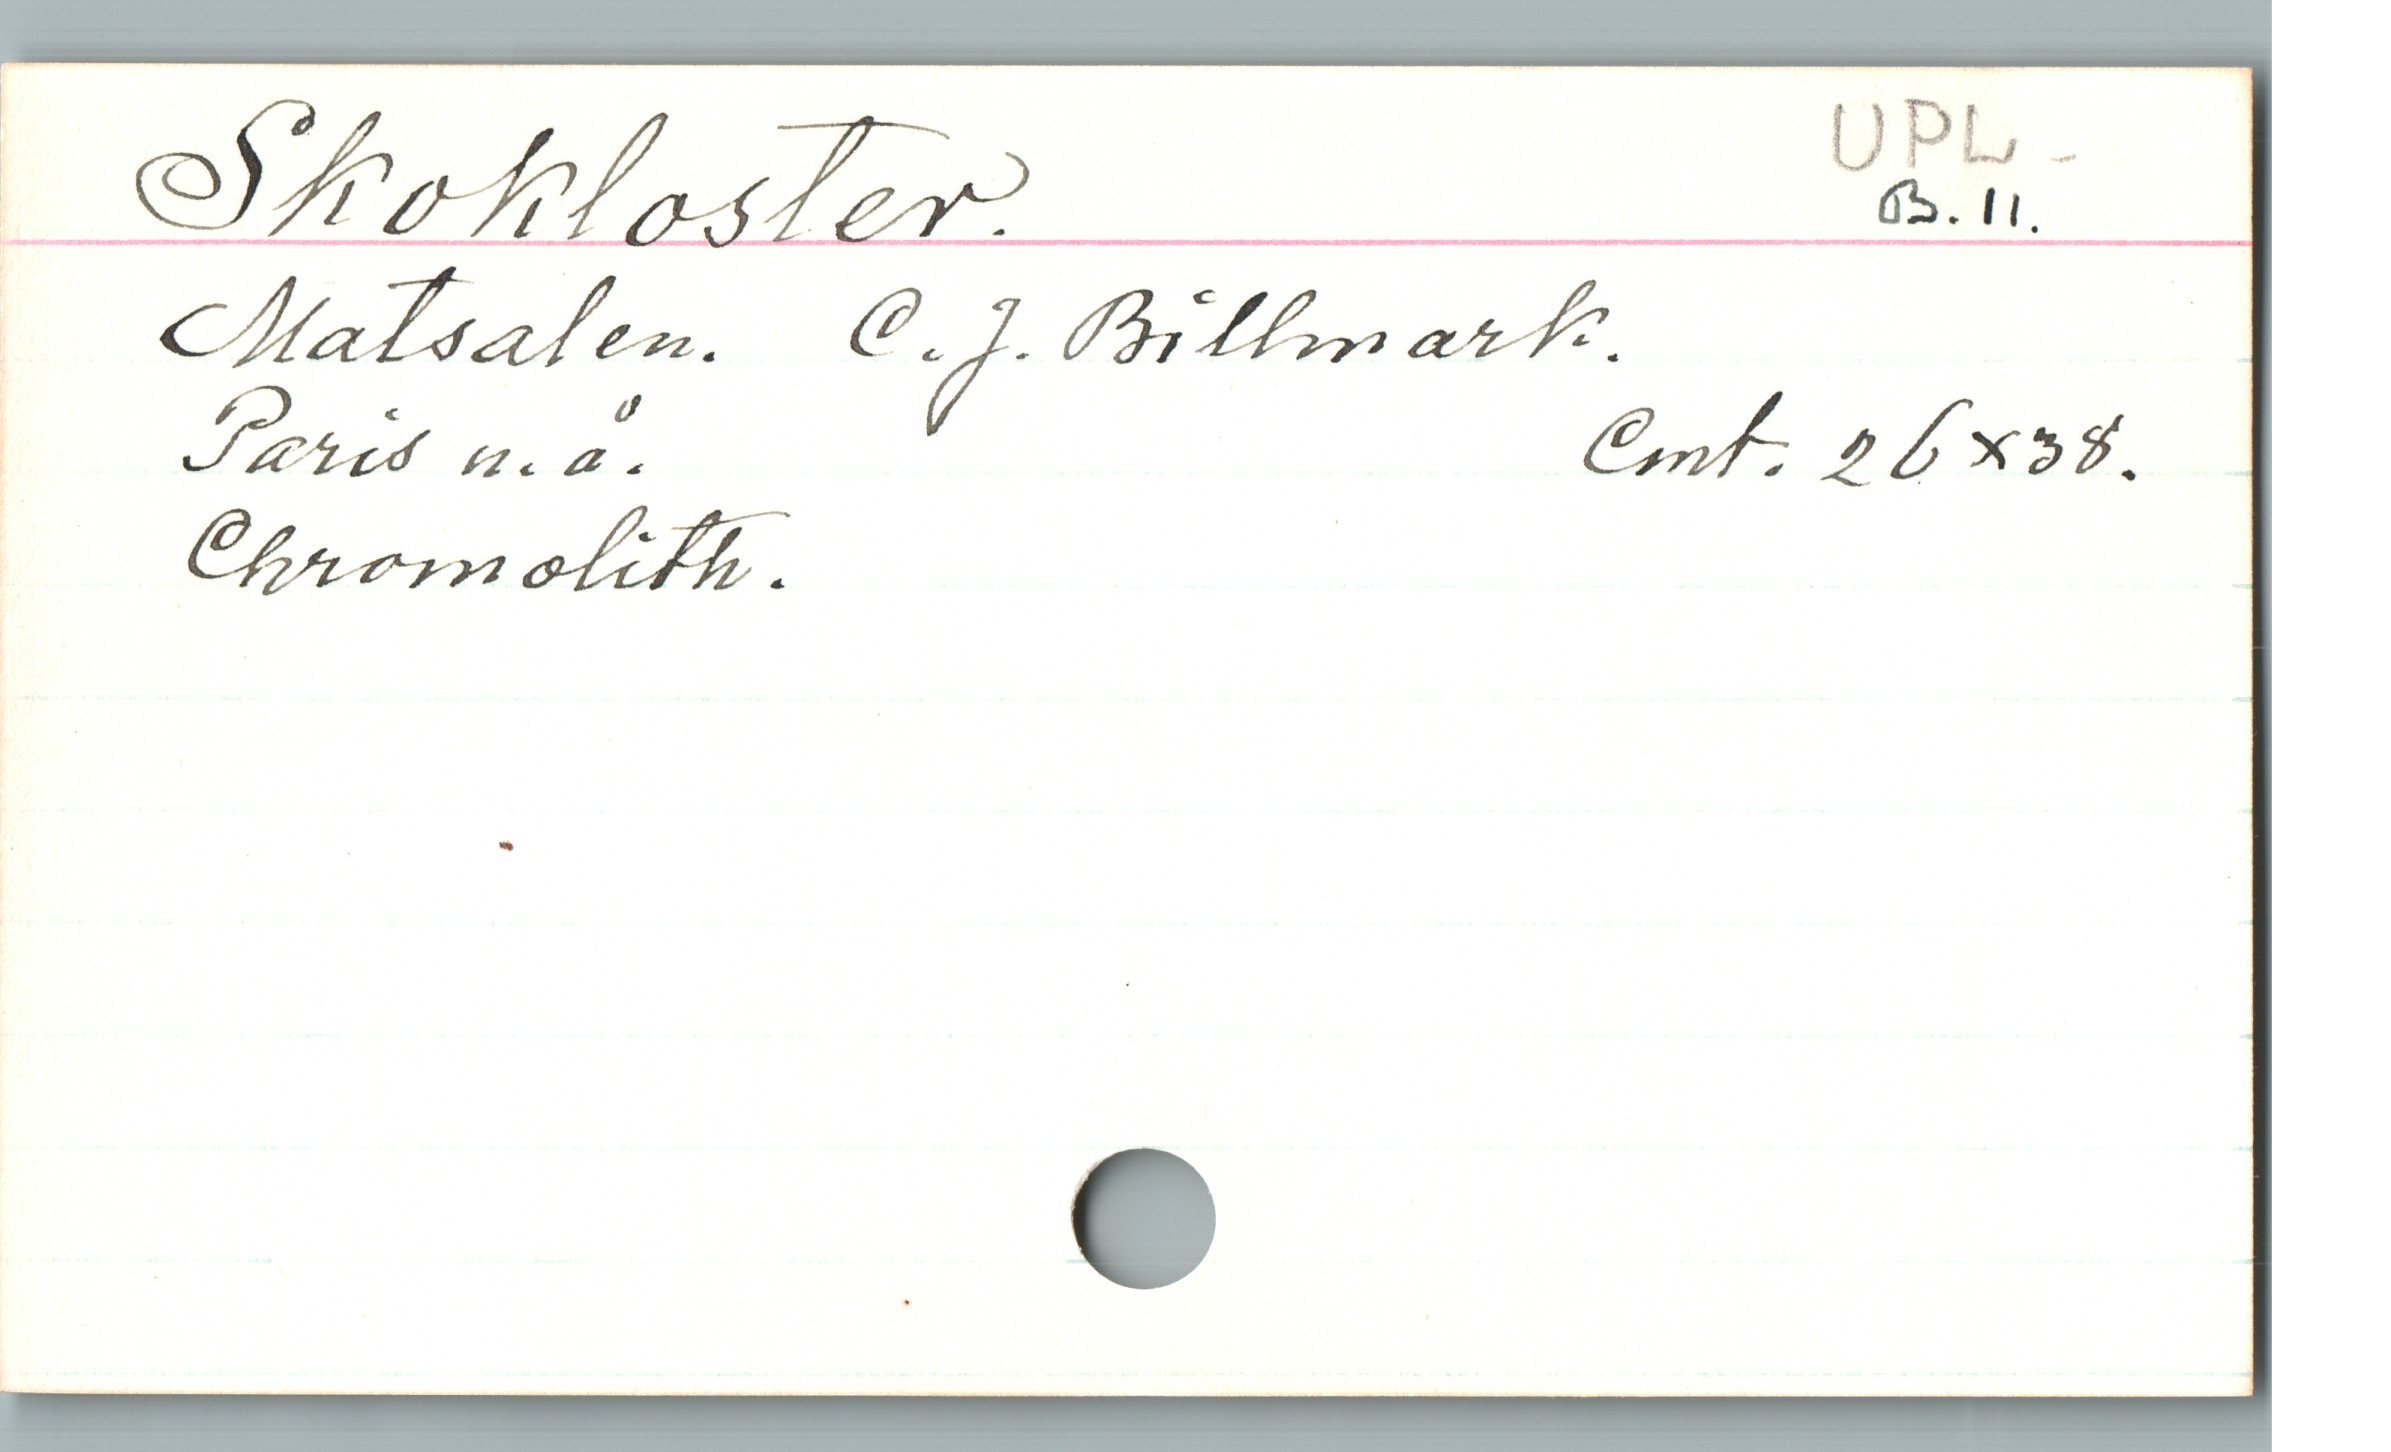 Skokloster.
UPL-
B. 11.
Matsalen. C. J. Billmark.
Paris u. å. Cmt. 26×38.
Chromolith.